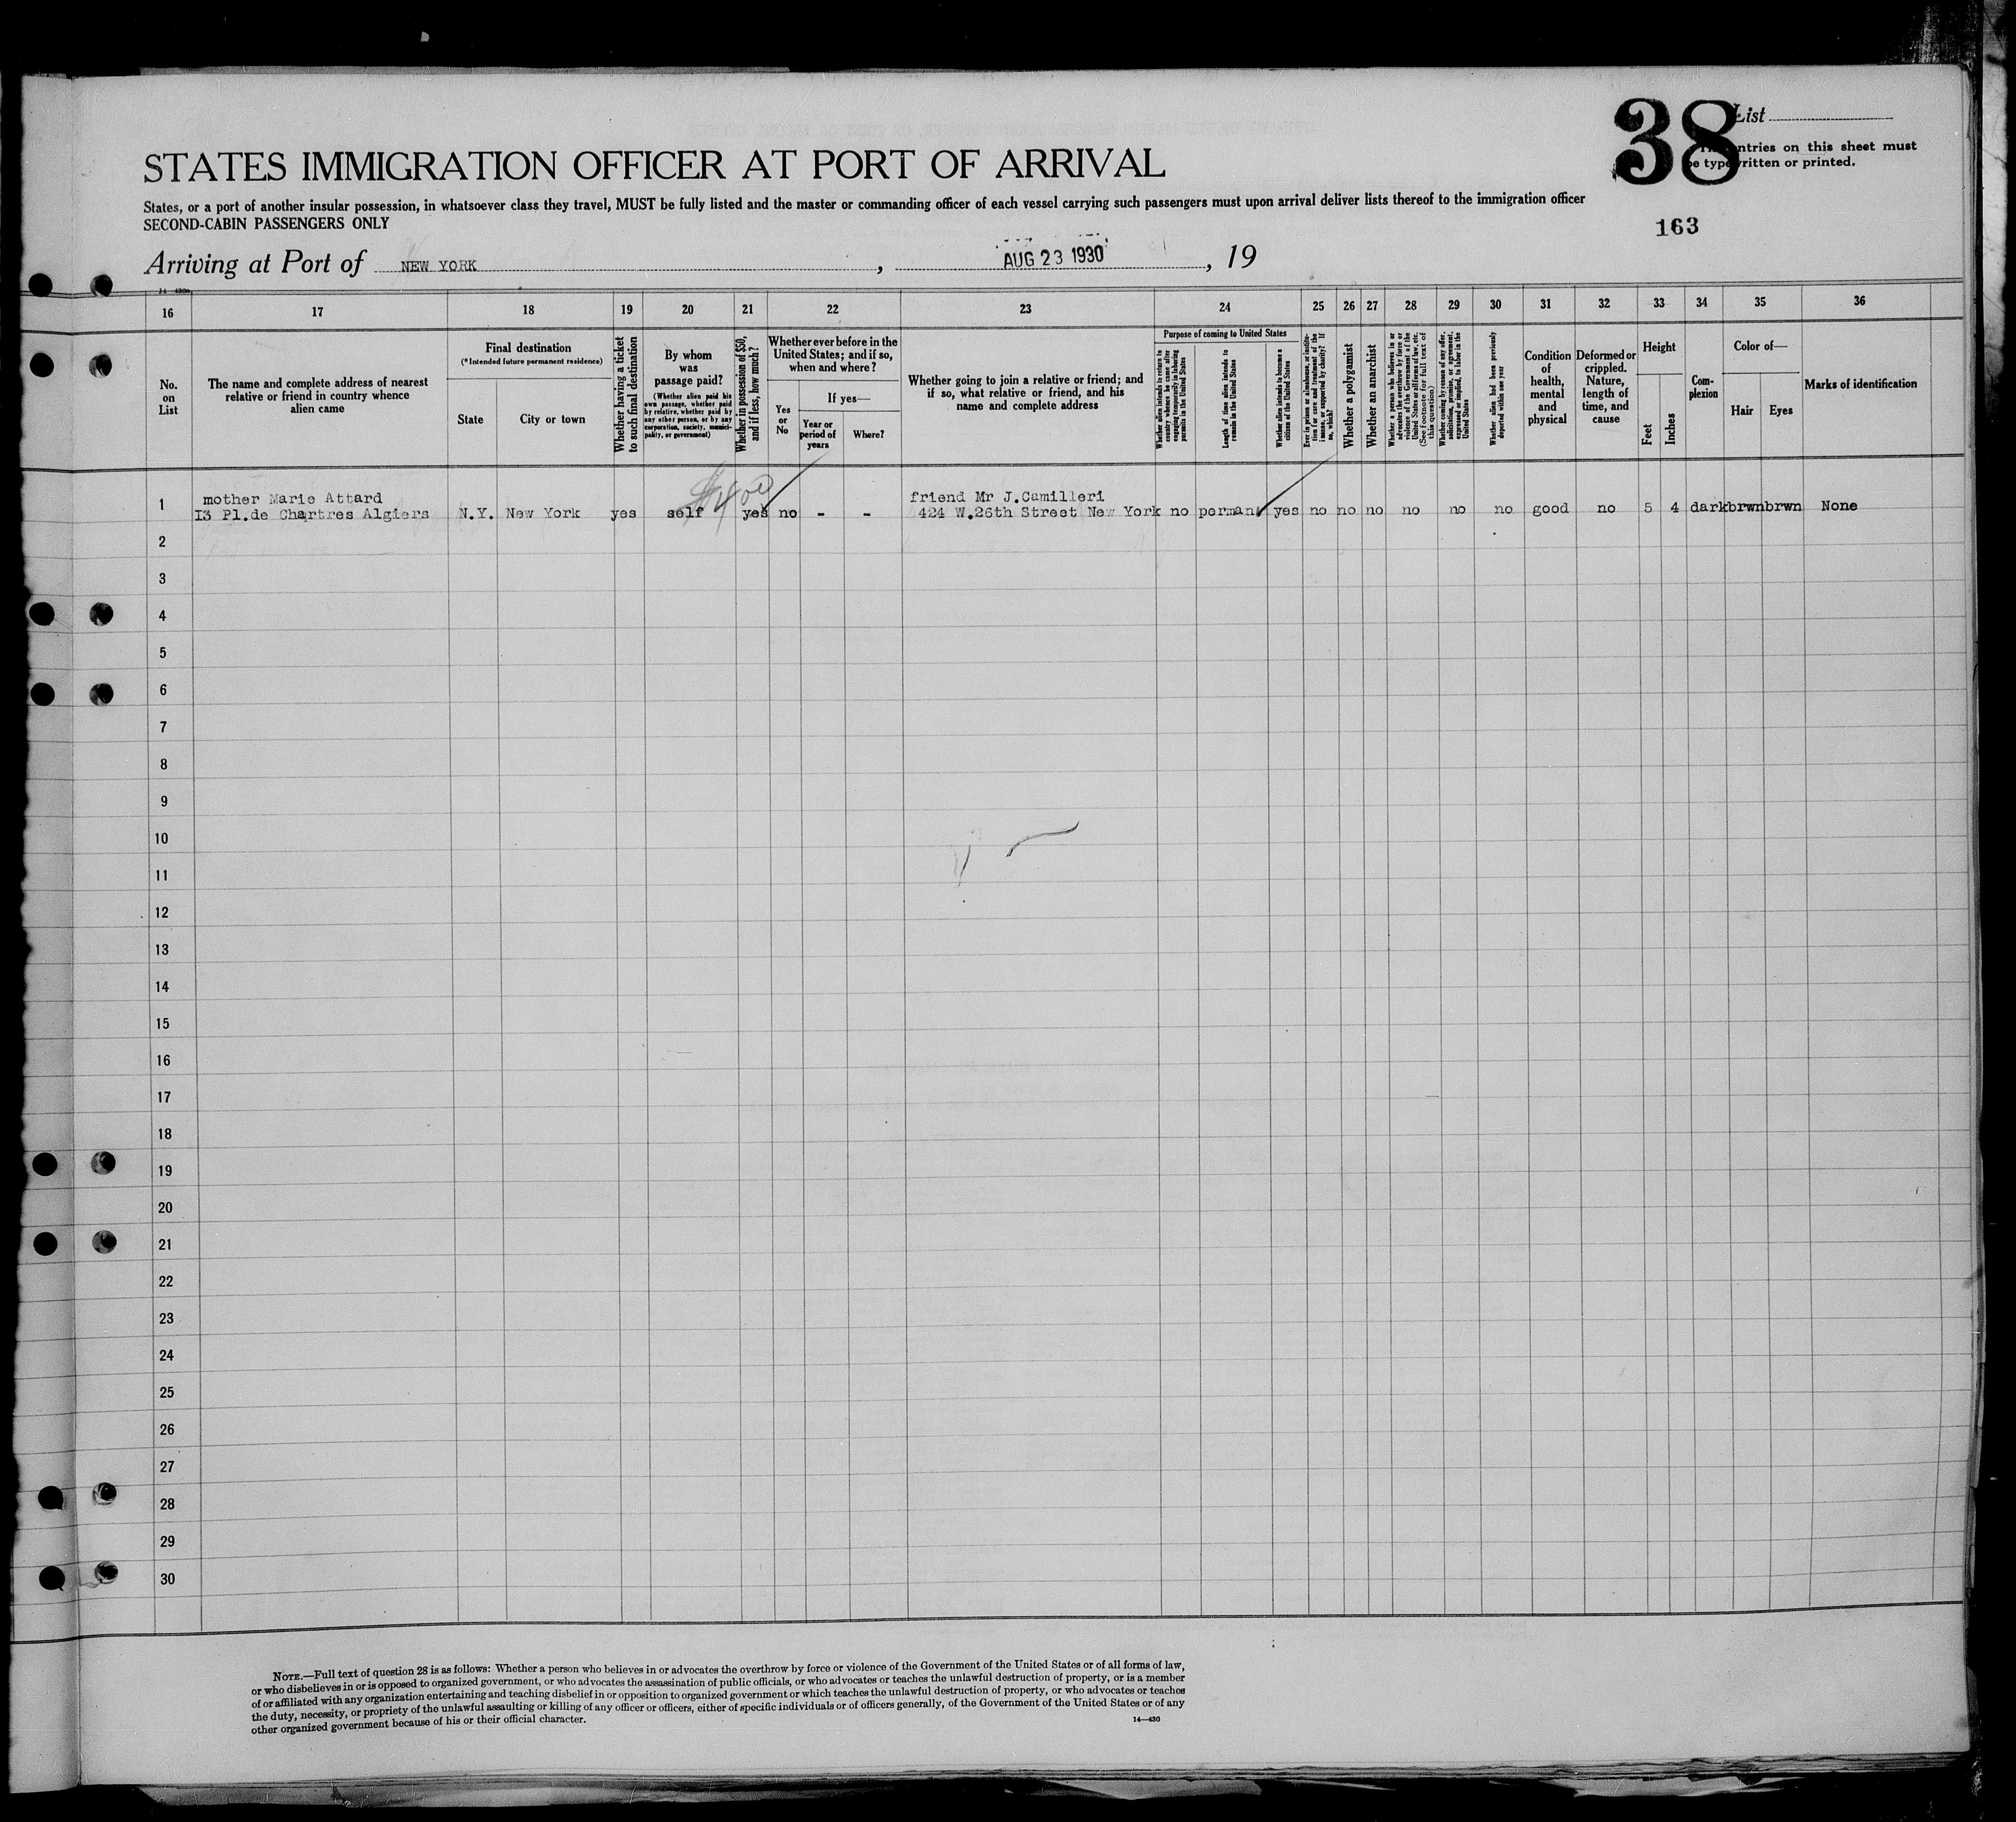 38
List
entries on this sheet must
be typewritten or printed.
STATES IMMIGRATION OFFICER AT PORT OF ARRIVAL
States, or a port of another insular possession, in whatsoever class they travel, MUST be fully listed and the master or commanding officer of each vessel carrying such passengers must upon arrival deliver lists thereof to the immigration officer
SECOND-CABIN PASSENGERS ONLY
163
Arriving at Port of NEW YORK, AUG 23 1930, 19
16 17 18 19 20 21 22 23 24 25 26 27 28 29 30 31 32 33 34 35 36
No. on List
The name and complete address of nearest relative or friend in country whence alien came
Final destination
(*Intended future permanent residence)
State
City or town
Whether having a ticket to such final destination
By whom was passage paid?
(Whether alien paid his own passage, whether paid by relative, whether paid by any other person, or by any corporation, society, municipality, or government)
Whether in possession of $50, and if less, how much?
Whether ever before in the United States; and if so, when and where?
Yes or No
If yes—
Year or period of years
Where?
Whether going to join a relative or friend; and if so, what relative or friend, and his name and complete address
Purpose of coming to United States
Whether alien intends to return to country whence he came after engaging temporarily in laboring pursuits in the United States
Length of time alien intends to remain in the United States
Whether alien intends to become a citizen of the United States
Ever in prison or almshouse, or institution for care and treatment of the insane, or supported by charity? If so, which?
Whether a polygamist
Whether an anarchist
Whether a person who believes in or advocates the overthrow by force or violence of the Government of the United States or all forms of law, etc. (See footnote for full text of this question)
Whether coming by reason of any offer, solicitation, promise, or agreement, expressed or implied, to labor in the United States
Whether alien had been previously deported within one year
Condition of health, mental and physical
Deformed or crippled. Nature, length of time, and cause
Height
Feet
Inches
Complexion
Color of—
Hair
Eyes
Marks of identification
$400
1 mother Marie Attard friend Mr J.Camilleri
I3 Pl.de Chartres Algiers N.Y. New York yes self yes no - - 424 W.26th Street New York no perman yes no no no no no no good no 5 4 dark brwn brwn None
2
3
4
5
6
7
8
9
10
11
12
13
14
15
16
17
18
19
20
21
22
23
24
25
26
27
28
29
30
NOTE.—Full text of question 28 is as follows: Whether a person who believes in or advocates the overthrow by force or violence of the Government of the United States or of all forms of law,
or who disbelieves in or is opposed to organized government, or who advocates the assassination of public officials, or who advocates or teaches the unlawful destruction of property, or is a member
of or affiliated with any organization entertaining and teaching disbelief in or opposition to organized government or which teaches the unlawful destruction of property, or who advocates or teaches
the duty, necessity, or propriety of the unlawful assaulting or killing of any officer or officers, either of specific individuals or of officers generally, of the Government of the United States or of any
other organized government because of his or their official character.
14—430